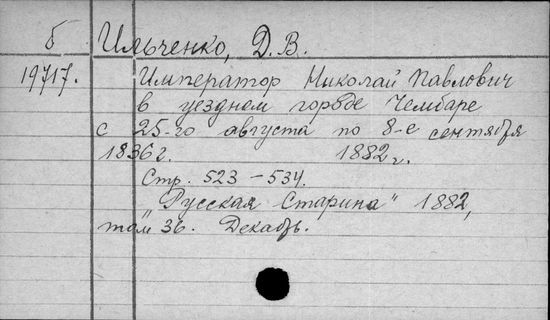 б Ильченко, Д. В.
19717. Император Николай Павлович
в уездном городе Чембаре
с 25-го августа по 8-е сентября
1836 г. 1882 г.
Стр. 523 – 534.
"Русская Старина" 1882,
том 36. Декабь.